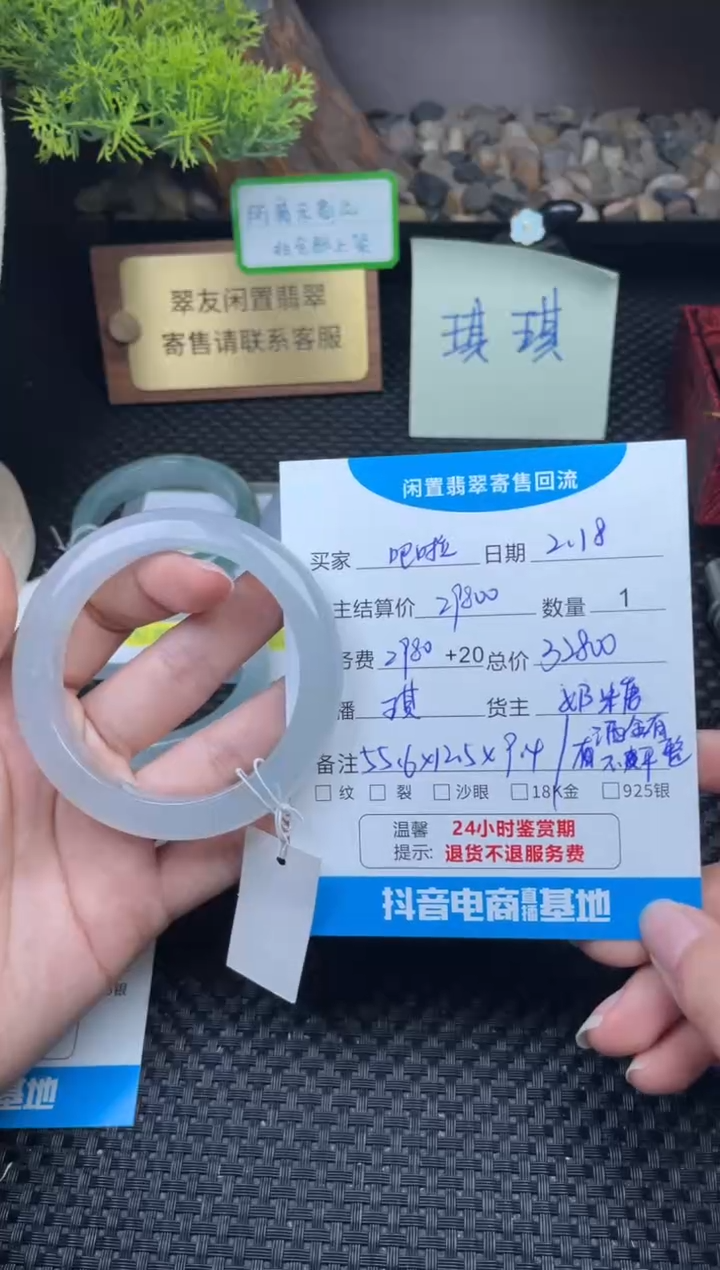 翠友闲置翡翠
寄售请联系客服
琪琪
闲置翡翠寄售回流
买家 吧啦 日期 2.18
主结算价 29800 数量 1
务费 2980 +20 总价 32800
播 琪 货主 奶朱唐
备注 55.6×12.5×9.4
纹 裂 沙眼 18K金 925银
温馨 24小时鉴赏期
提示: 退货不退服务费
抖音电商直播基地
银
基地